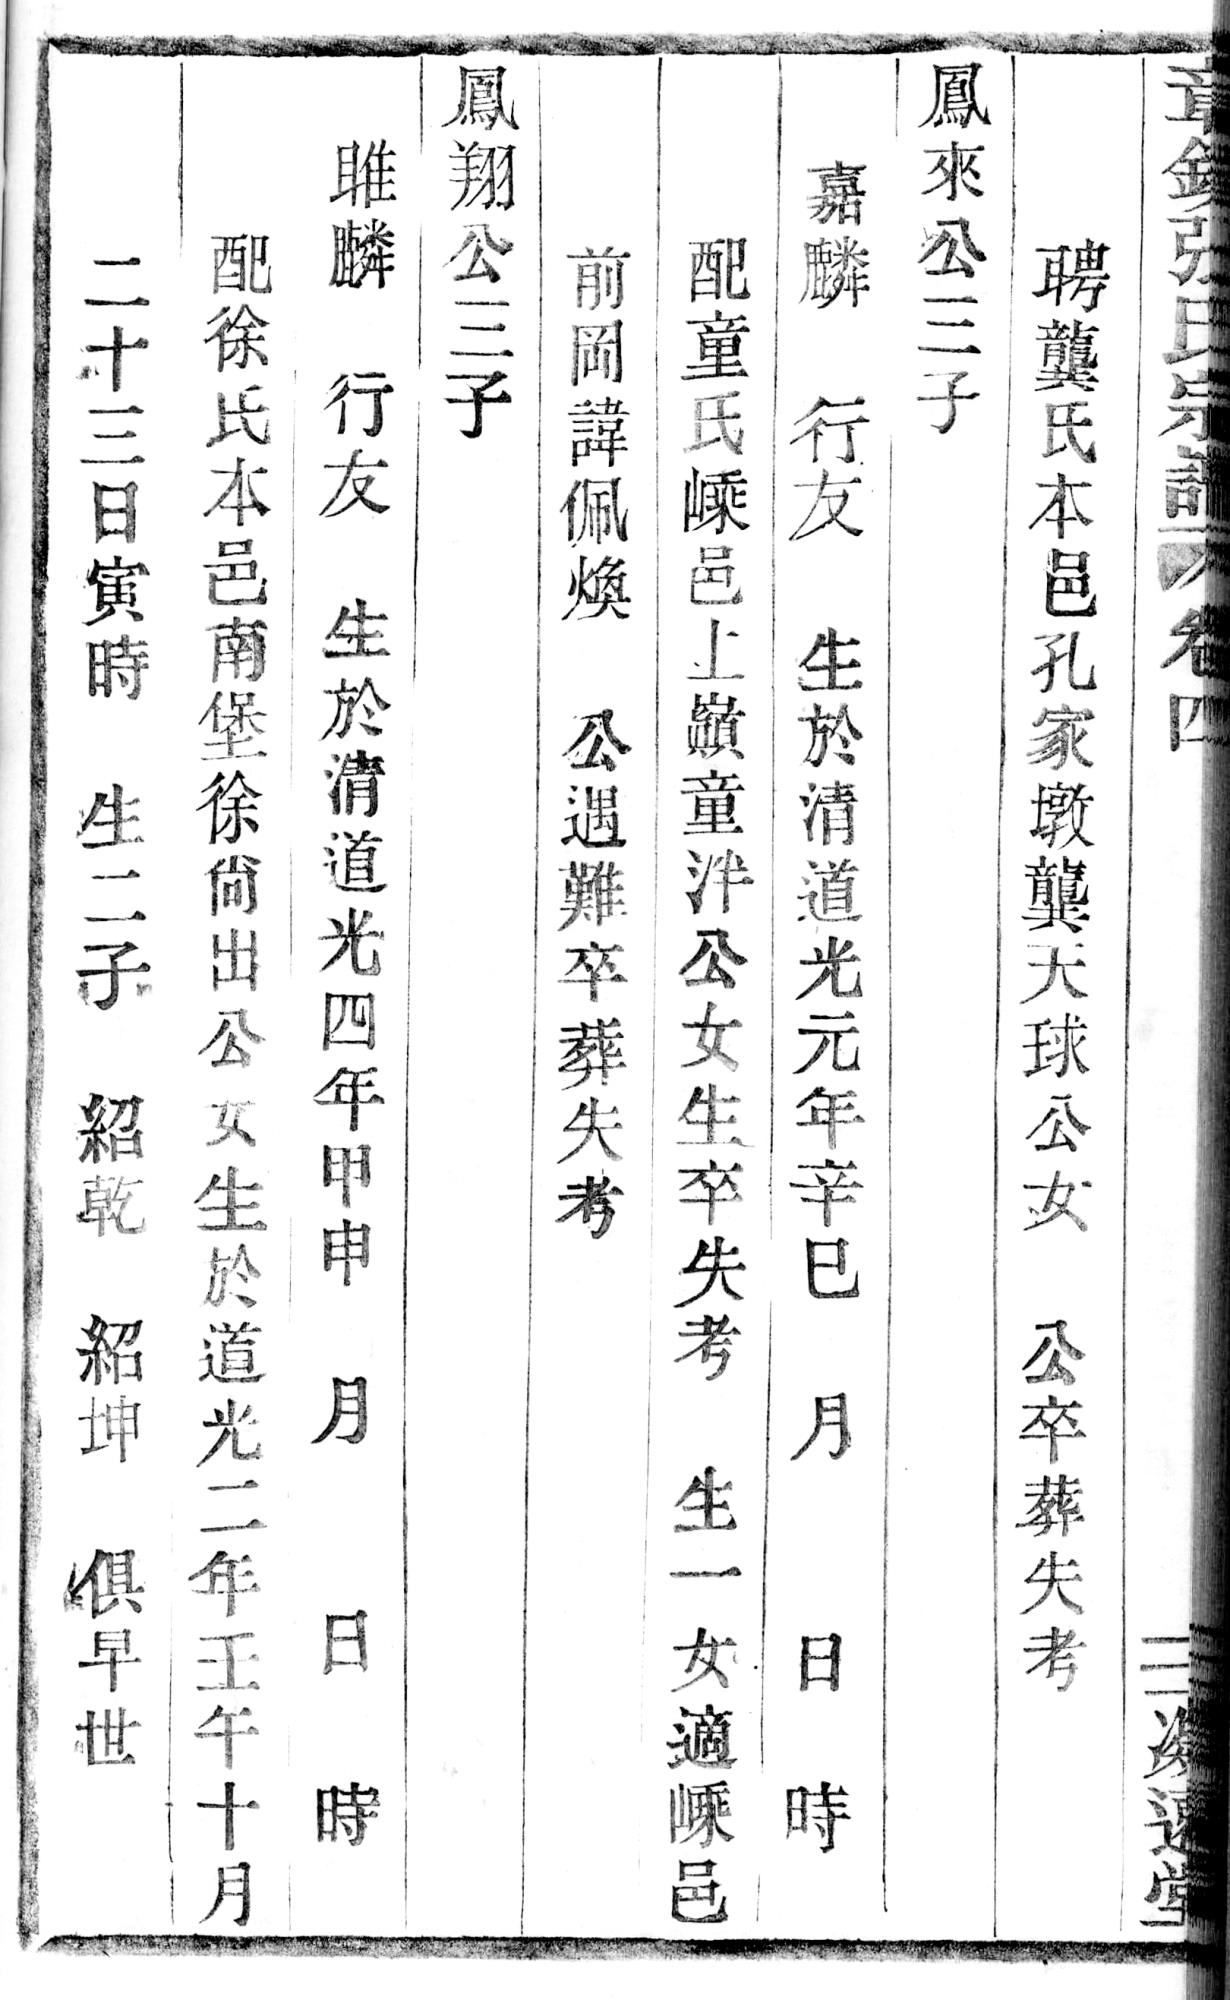 章鎮張氏宗譜 卷四 三 遠堂
聘龔氏本邑孔家墩龔天球公女 公卒葬失考
鳳來公三子
嘉麟 行友 生於清道光元年辛巳 月 日 時
配童氏嵊邑上巔童泮公女生卒失考 生一女適嵊邑
前岡諱佩煥 公遇難卒葬失考
鳳翔公三子
睢麟 行友 生於清道光四年甲申 月 日 時
配徐氏本邑南堡徐尙出公女生於道光二年壬午十月
二十三日寅時 生二子 紹乾 紹坤 俱早世